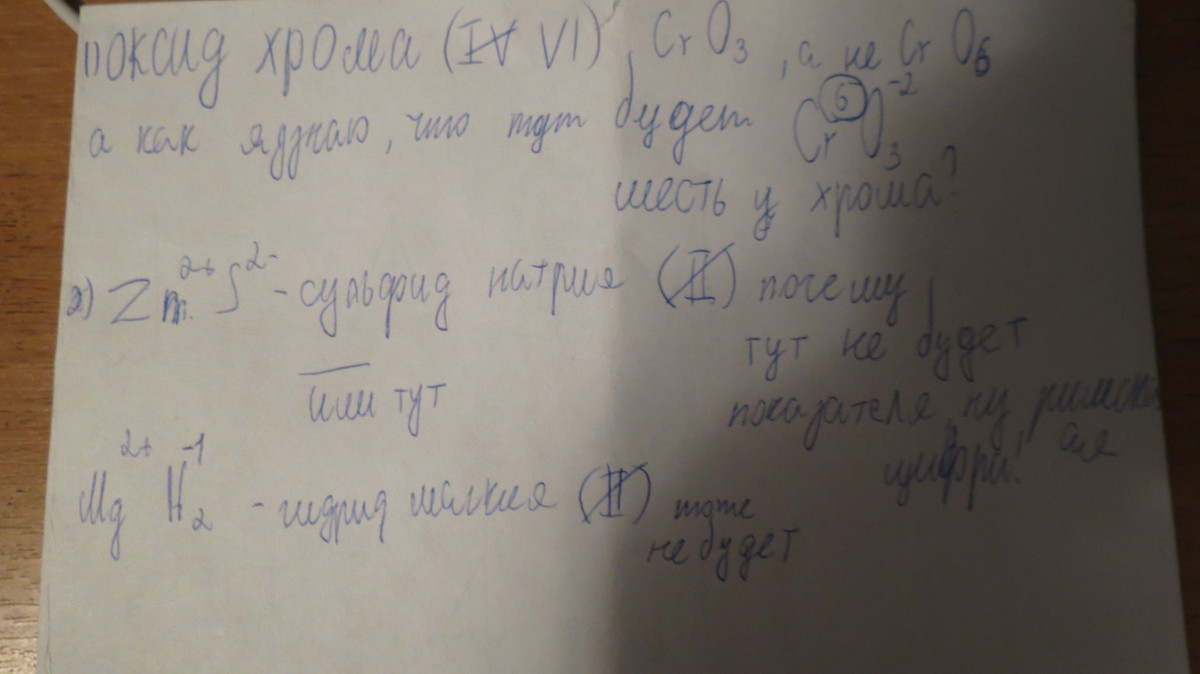 1) оксид хрома (IV VI), CrO3, а не CrO6
а как я узнаю, что тут будет Cr⁶O3⁻²
шесть у хрома?
2) Zn²⁺S²⁻ - сульфид натрия (II) почему
тут не будет
показателя, ну римская
цифри!
или тут
Mg²⁺H2⁻¹ - гидрид магния (II) тоже
не будет